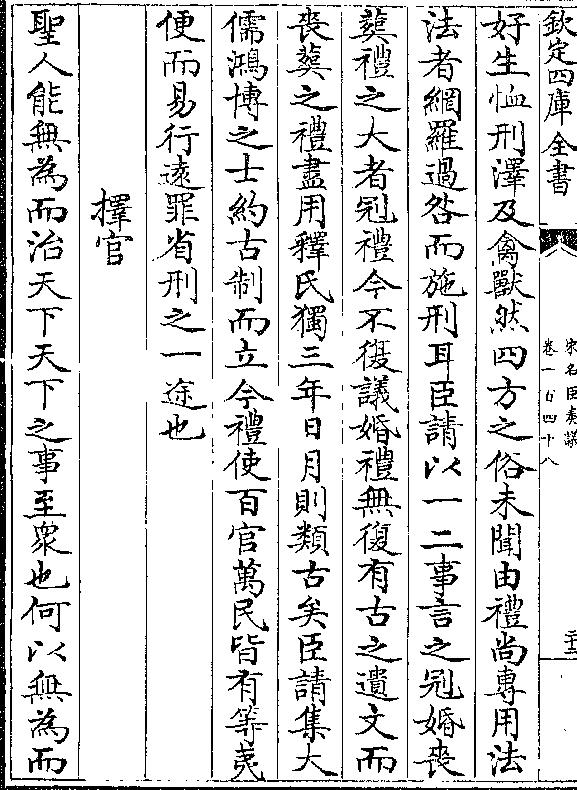 欽定四庫全書
宋名臣奏議
卷一百四十八
二十三
好生恤刑澤及禽獸然四方之俗未聞由禮尚專用法
法者網羅過咎而施刑耳臣請以一二事言之冠婚喪
葬禮之大者冠禮今不復議婚禮無復有古之遺文而
喪葬之禮盡用釋氏獨三年日月則類古矣臣請集大
儒鴻博之士約古制而立今禮使百官萬民皆有等彛
便而易行遠罪省刑之一途也
擇官
聖人能無為而治天下天下之事至衆也何以無為而